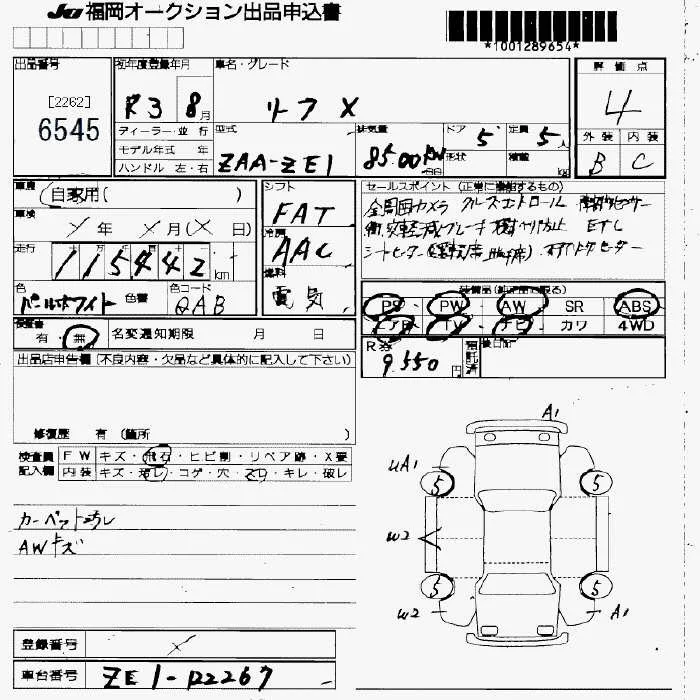 JU 福岡オークション出品申込書
*1001289654*
出品番号
[2262]
6545
初年度登録年月
R3 8月
車名・グレード
リーフ X
評価点
4
外装 内装
B C
ディーラー・並行
モデル年式 年
ハンドル 左・右
型式
ZAA-ZE1
排気量
8500KW
ドア
5
形状
定員
5人
積載
kg
車歴
自家用( )
車検
年 月( 日)
走行
115442 km
色
パールホワイト
色替
色コード
QAB
シフト
FAT
冷房
AAC
燃料
電気
セールスポイント(正常に機能するもの)
全周囲カメラ クルーズコントロール
衝突軽減ブレーキ 横すべり防止 ETC
シートヒーター(運転席 助手席)
装備品(純正品で限る)
PS・PW・AW SR ABS
エアB・TV・ナビ・カワ 4WD
R券
9,550円
預託済
後日記
有・無
名変通知期限 月 日
出品店申告欄(不良内容・欠品など具体的に記入して下さい)
修復歴 有(箇所 )
検査員記入欄
FW キズ・飛石・ヒビ割・リペア跡・X要
内装 キズ・汚レ・コゲ・穴・スレ・キレ・破レ
カーペット汚レ
AWキズ
A1
UA1
5
5
W2
5
5
W2
A1
登録番号
車台番号